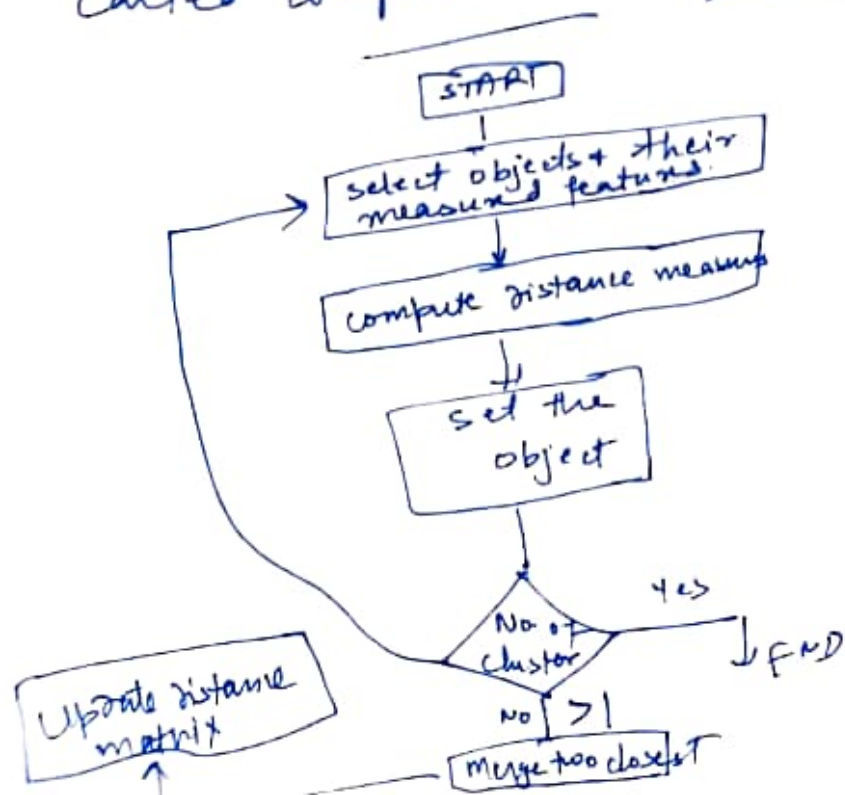 START
select objects + their
measured features.
compute distance measures
set the
object
Yes
No of
cluster
END
No >1
Update distance
matrix
Merge two closest